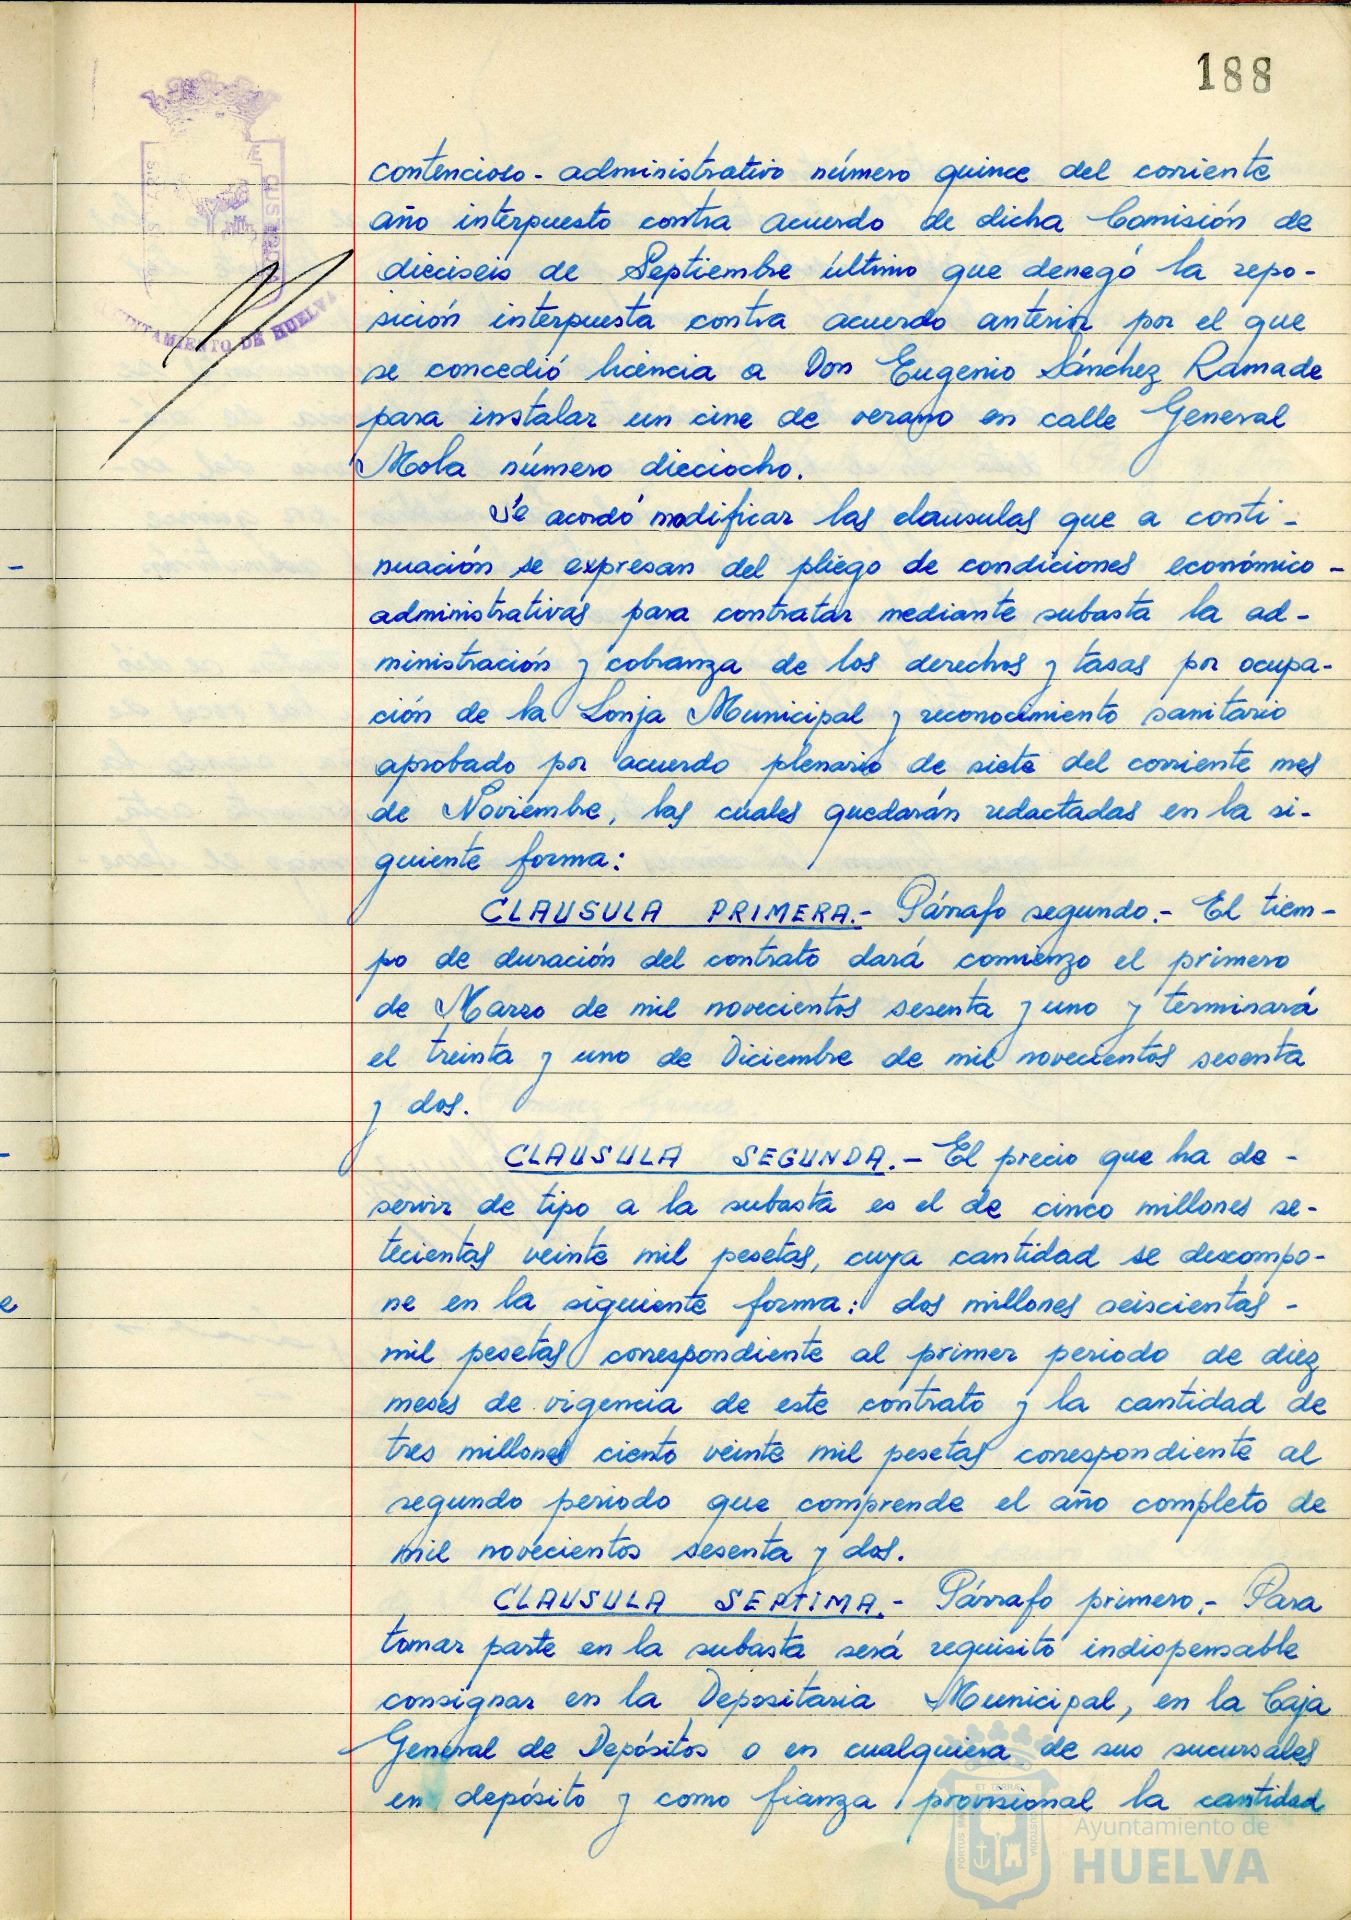 188
AYUNTAMIENTO DE HUELVA
contencioso-administrativo número quince del corriente
año interpuesto contra acuerdo de dicha Comisión de
dieciseis de Septiembre último que denegó la repo-
sición interpuesta contra acuerdo anterior por el que
se concedió licencia a Don Eugenio Sánchez Ramade
para instalar un cine de verano en calle General
Mola número dieciocho.
Se acordó modificar las clausulas que a conti-
nuación se expresan del pliego de condiciones económico-
administrativas para contratar mediante subasta la ad-
ministración y cobranza de los derechos y tasas por ocupa-
ción de la Lonja Municipal y reconocimiento sanitario
aprobado por acuerdo plenario de siete del corriente mes
de Noviembre, las cuales quedarán redactadas en la si-
guiente forma:
CLAUSULA PRIMERA.- Párrafo segundo.- El tiem-
po de duración del contrato dará comienzo el primero
de Marzo de mil novecientos sesenta y uno y terminará
el treinta y uno de Diciembre de mil novecientos sesenta
y dos.
CLAUSULA SEGUNDA.- El precio que ha de -
servir de tipo a la subasta es el de cinco millones se-
tecientas veinte mil pesetas, cuya cantidad se descompo-
ne en la siguiente forma: dos millones seiscientas -
mil pesetas correspondiente al primer periodo de diez
meses de vigencia de este contrato y la cantidad de
tres millones ciento veinte mil pesetas correspondiente al
segundo periodo que comprende el año completo de
mil novecientos sesenta y dos.
CLAUSULA SEPTIMA.- Párrafo primero.- Para
tomar parte en la subasta será requisito indispensable
consignar en la Depositaria Municipal, en la Caja
General de Depósitos o en cualquiera de sus sucursales
en depósito y como fianza provisional la cantidad
Ayuntamiento de
HUELVA